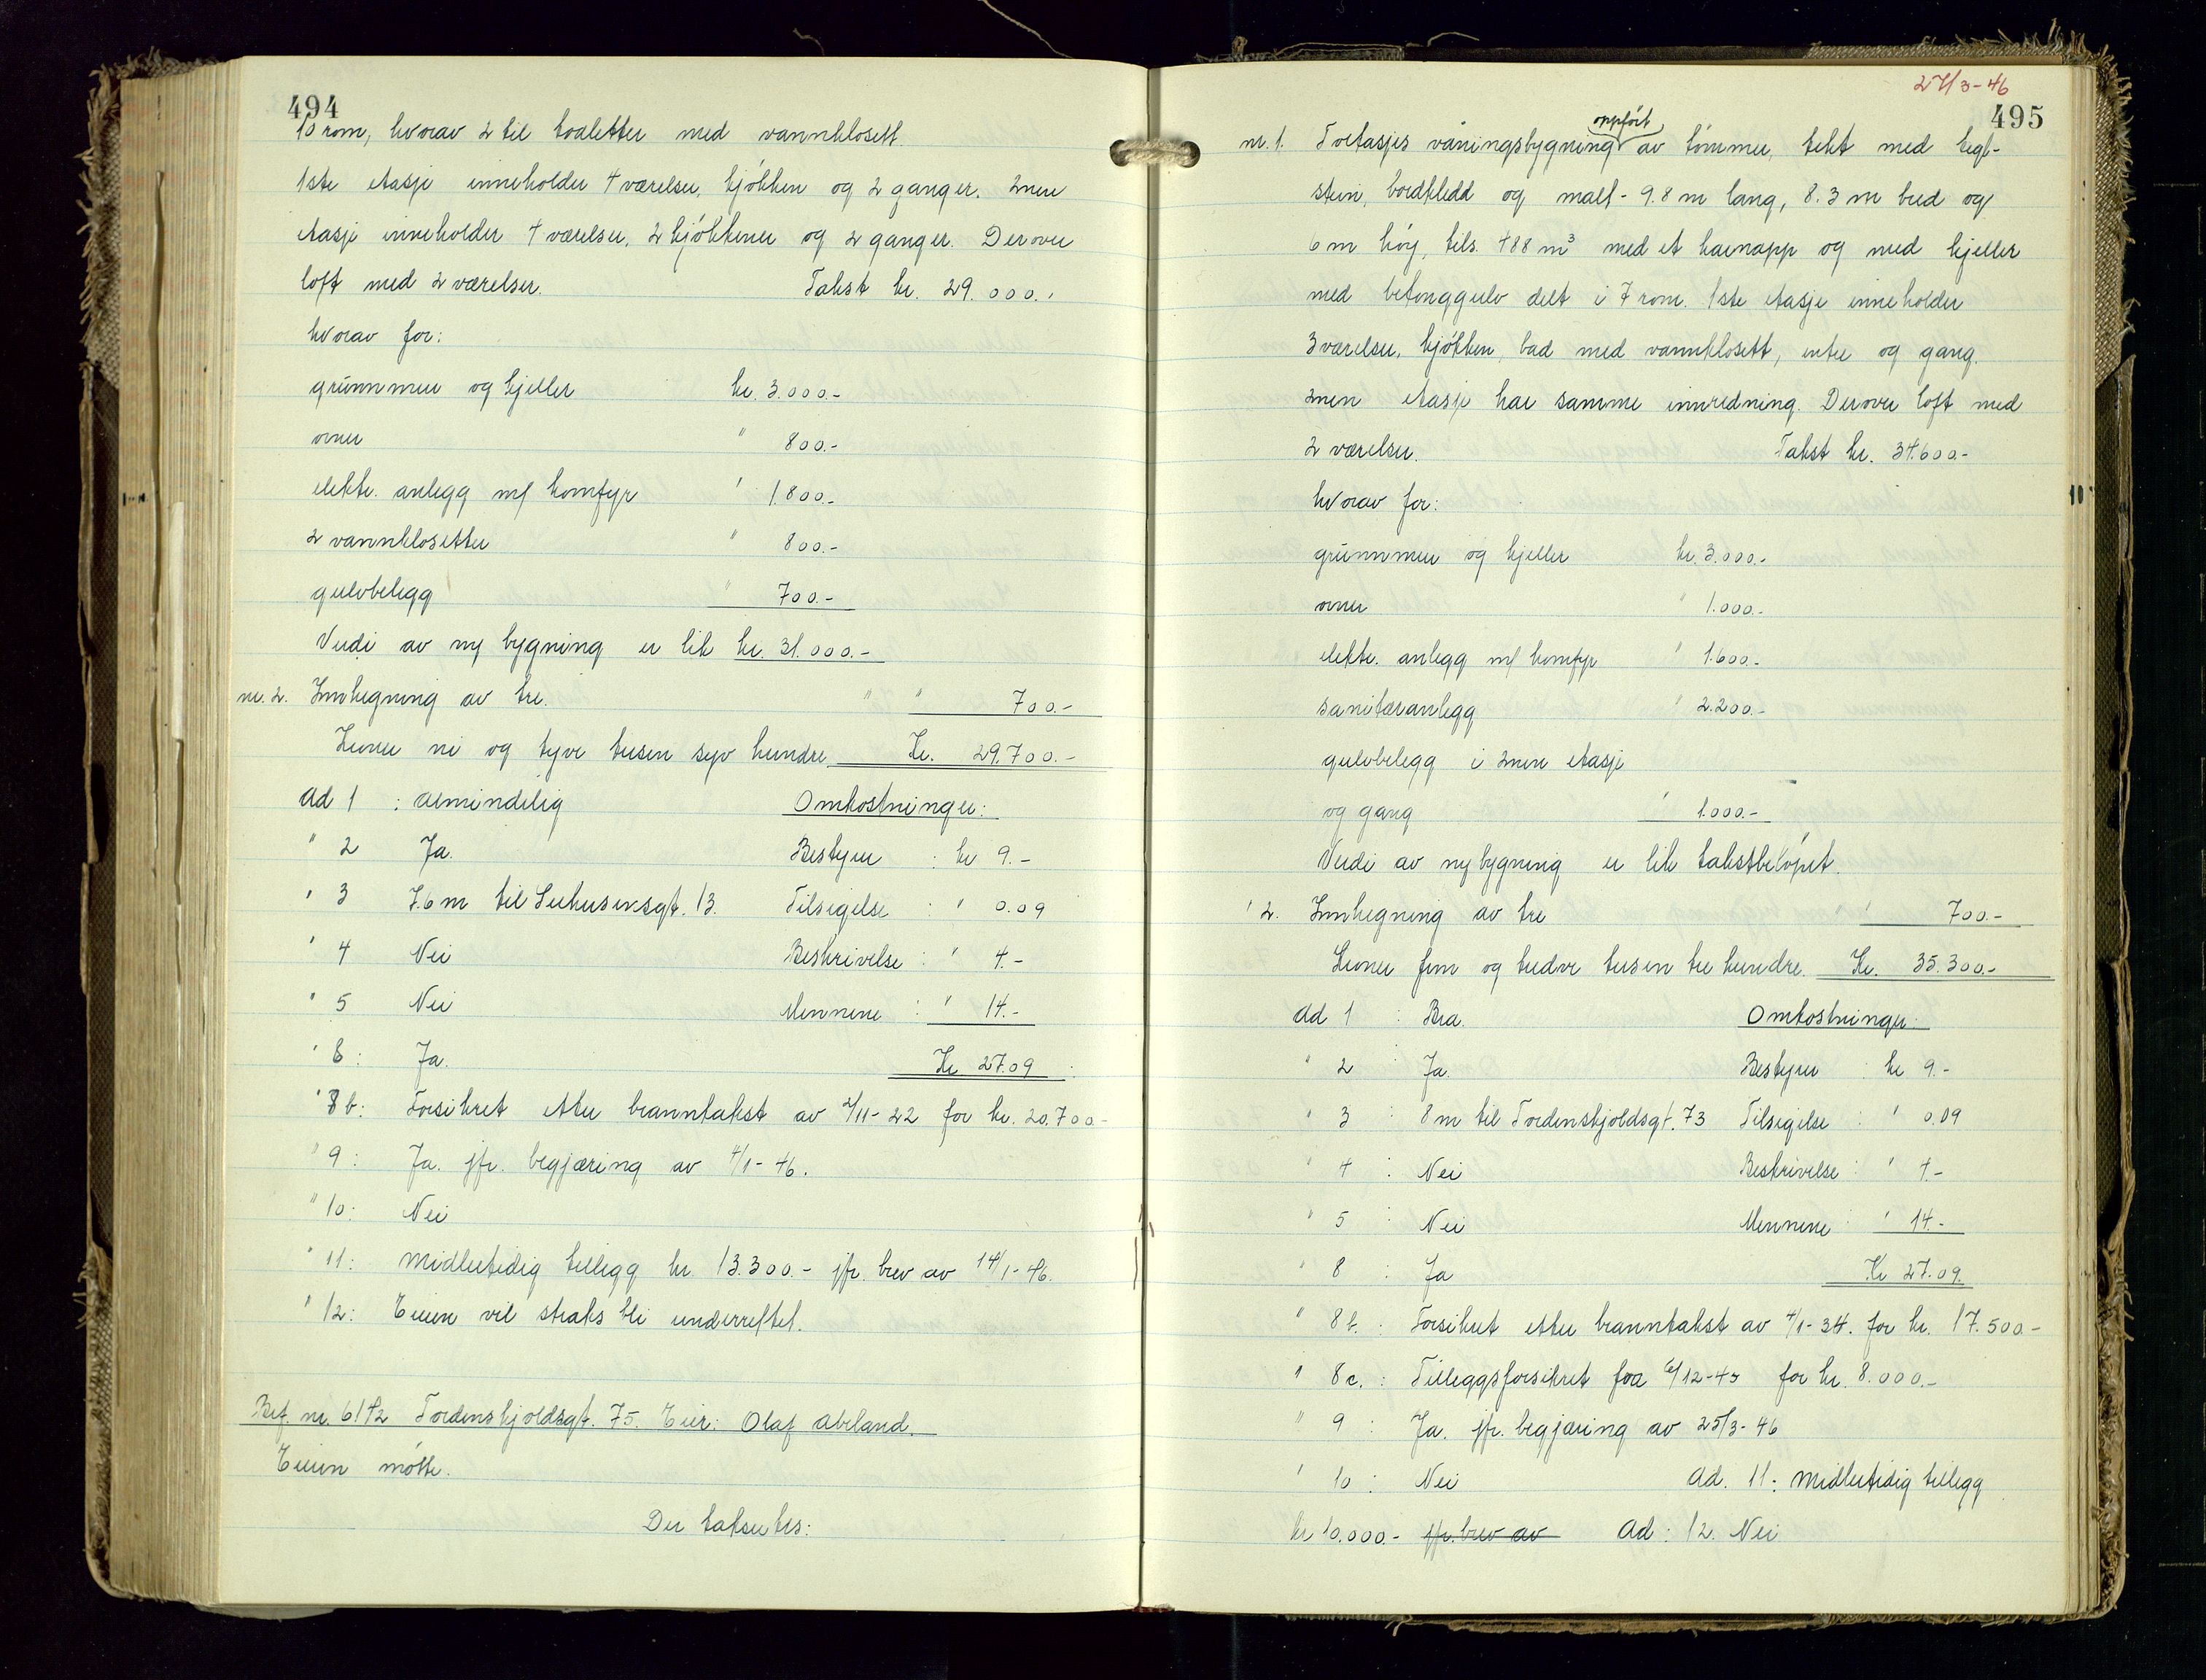 494
10 rom, hvorav 2 til toaletter med vannklosett.
1ste etasje inneholder 4 værelser, kjøkken og 2 ganger. 2nen
etasje inneholder 4 værelser, 2 kjøkkener og 2 ganger. Derover
loft med 2 værelser. Takst kr. 29.000.-
hvorav for:
grunnmur og kjeller kr. 3.000.-
ovner " 800.-
elektr. anlegg m/ komfyr " 1.800.-
2 vannklosetter " 800.-
gulvbelegg " 700.-
Verdi av ny bygning er lik kr. 31.000.-
nr. 2. Innhegning av tre. " " 700.-
Kroner ni og tyve tusen syv hundre Kr. 29.700.-
Ad 1 : Almindelig Omkostninger:
" 2 Ja. Bestyrer : kr 9.-
" 3 7.6 m til Seehusensgt. 13. Tilsigelse : " 0.09
" 4 Nei Beskrivelse : " 4.-
" 5 Nei Mennene : " 14.-
" 8 : Ja. Kr 27.09
" 8 b: Forsikret etter branntakst av 2/11-22 for kr. 20.700.-
" 9 : Ja. jfr. begjæring av 4/1-46.
" 10: Nei
" 11: Midlertidig tillegg kr. 13.300.- jfr. brev av 14/1-46.
" 12: Eieren vil straks bli underrettet.
Bef. nr. 6142 Tordenskjoldsgt. 75. Eier: Olaf Abeland.
Eieren møtte.
Der takseres:
27/3-46
495
oppført
nr. 1. Toetasjes våningsbygning av tømmer, tekt med tegl-
stein, bordkledd og malt - 9.8 m lang, 8.3 m bred og
6 m høy, tils. 488 m³ med et karnapp og med kjeller
med betonggulv delt i 7 rom. 1ste etasje inneholder
3 værelser, kjøkken, bad med vannklosett, entre og gang.
2nen etasje har samme innredning. Derover loft med
2 værelser. Takst kr. 34.600.-
hvorav for:
grunnmur og kjeller kr. 3.000.-
ovner " 1.000.-
elektr. anlegg m/ komfyr " 1.600.-
sanitæranlegg " 2.200.-
gulvbelegg i 2nen etasje
og gang " 1.000.-
Verdi av ny bygning er lik takstbeløpet.
" 2. Innhegning av tre " " 700.-
Kroner fem og tredve tusen tre hundre. Kr. 35.300.-
Ad 1 : Bra. Omkostninger:
" 2 : Ja. Bestyrer : kr 9.-
" 3 : 8 m til Tordenskjoldsgt. 73 Tilsigelse : " 0.09
" 4 : Nei Beskrivelse : " 4.-
" 5 : Nei Mennene : " 14.-
" 8 : Ja Kr 27.09.
" 8 b. : Forsikret etter branntakst av 4/1-34. for kr. 17.500.-
" 8 c. : Tilleggsforsikret fra 6/12-45 for kr. 8.000.-
" 9 : Ja. jfr. begjæring av 25/3-46
" 10 : Nei Ad. 11: Midlertidig tillegg
kr 10.000.- jfr. brev av Ad : 12. Nei